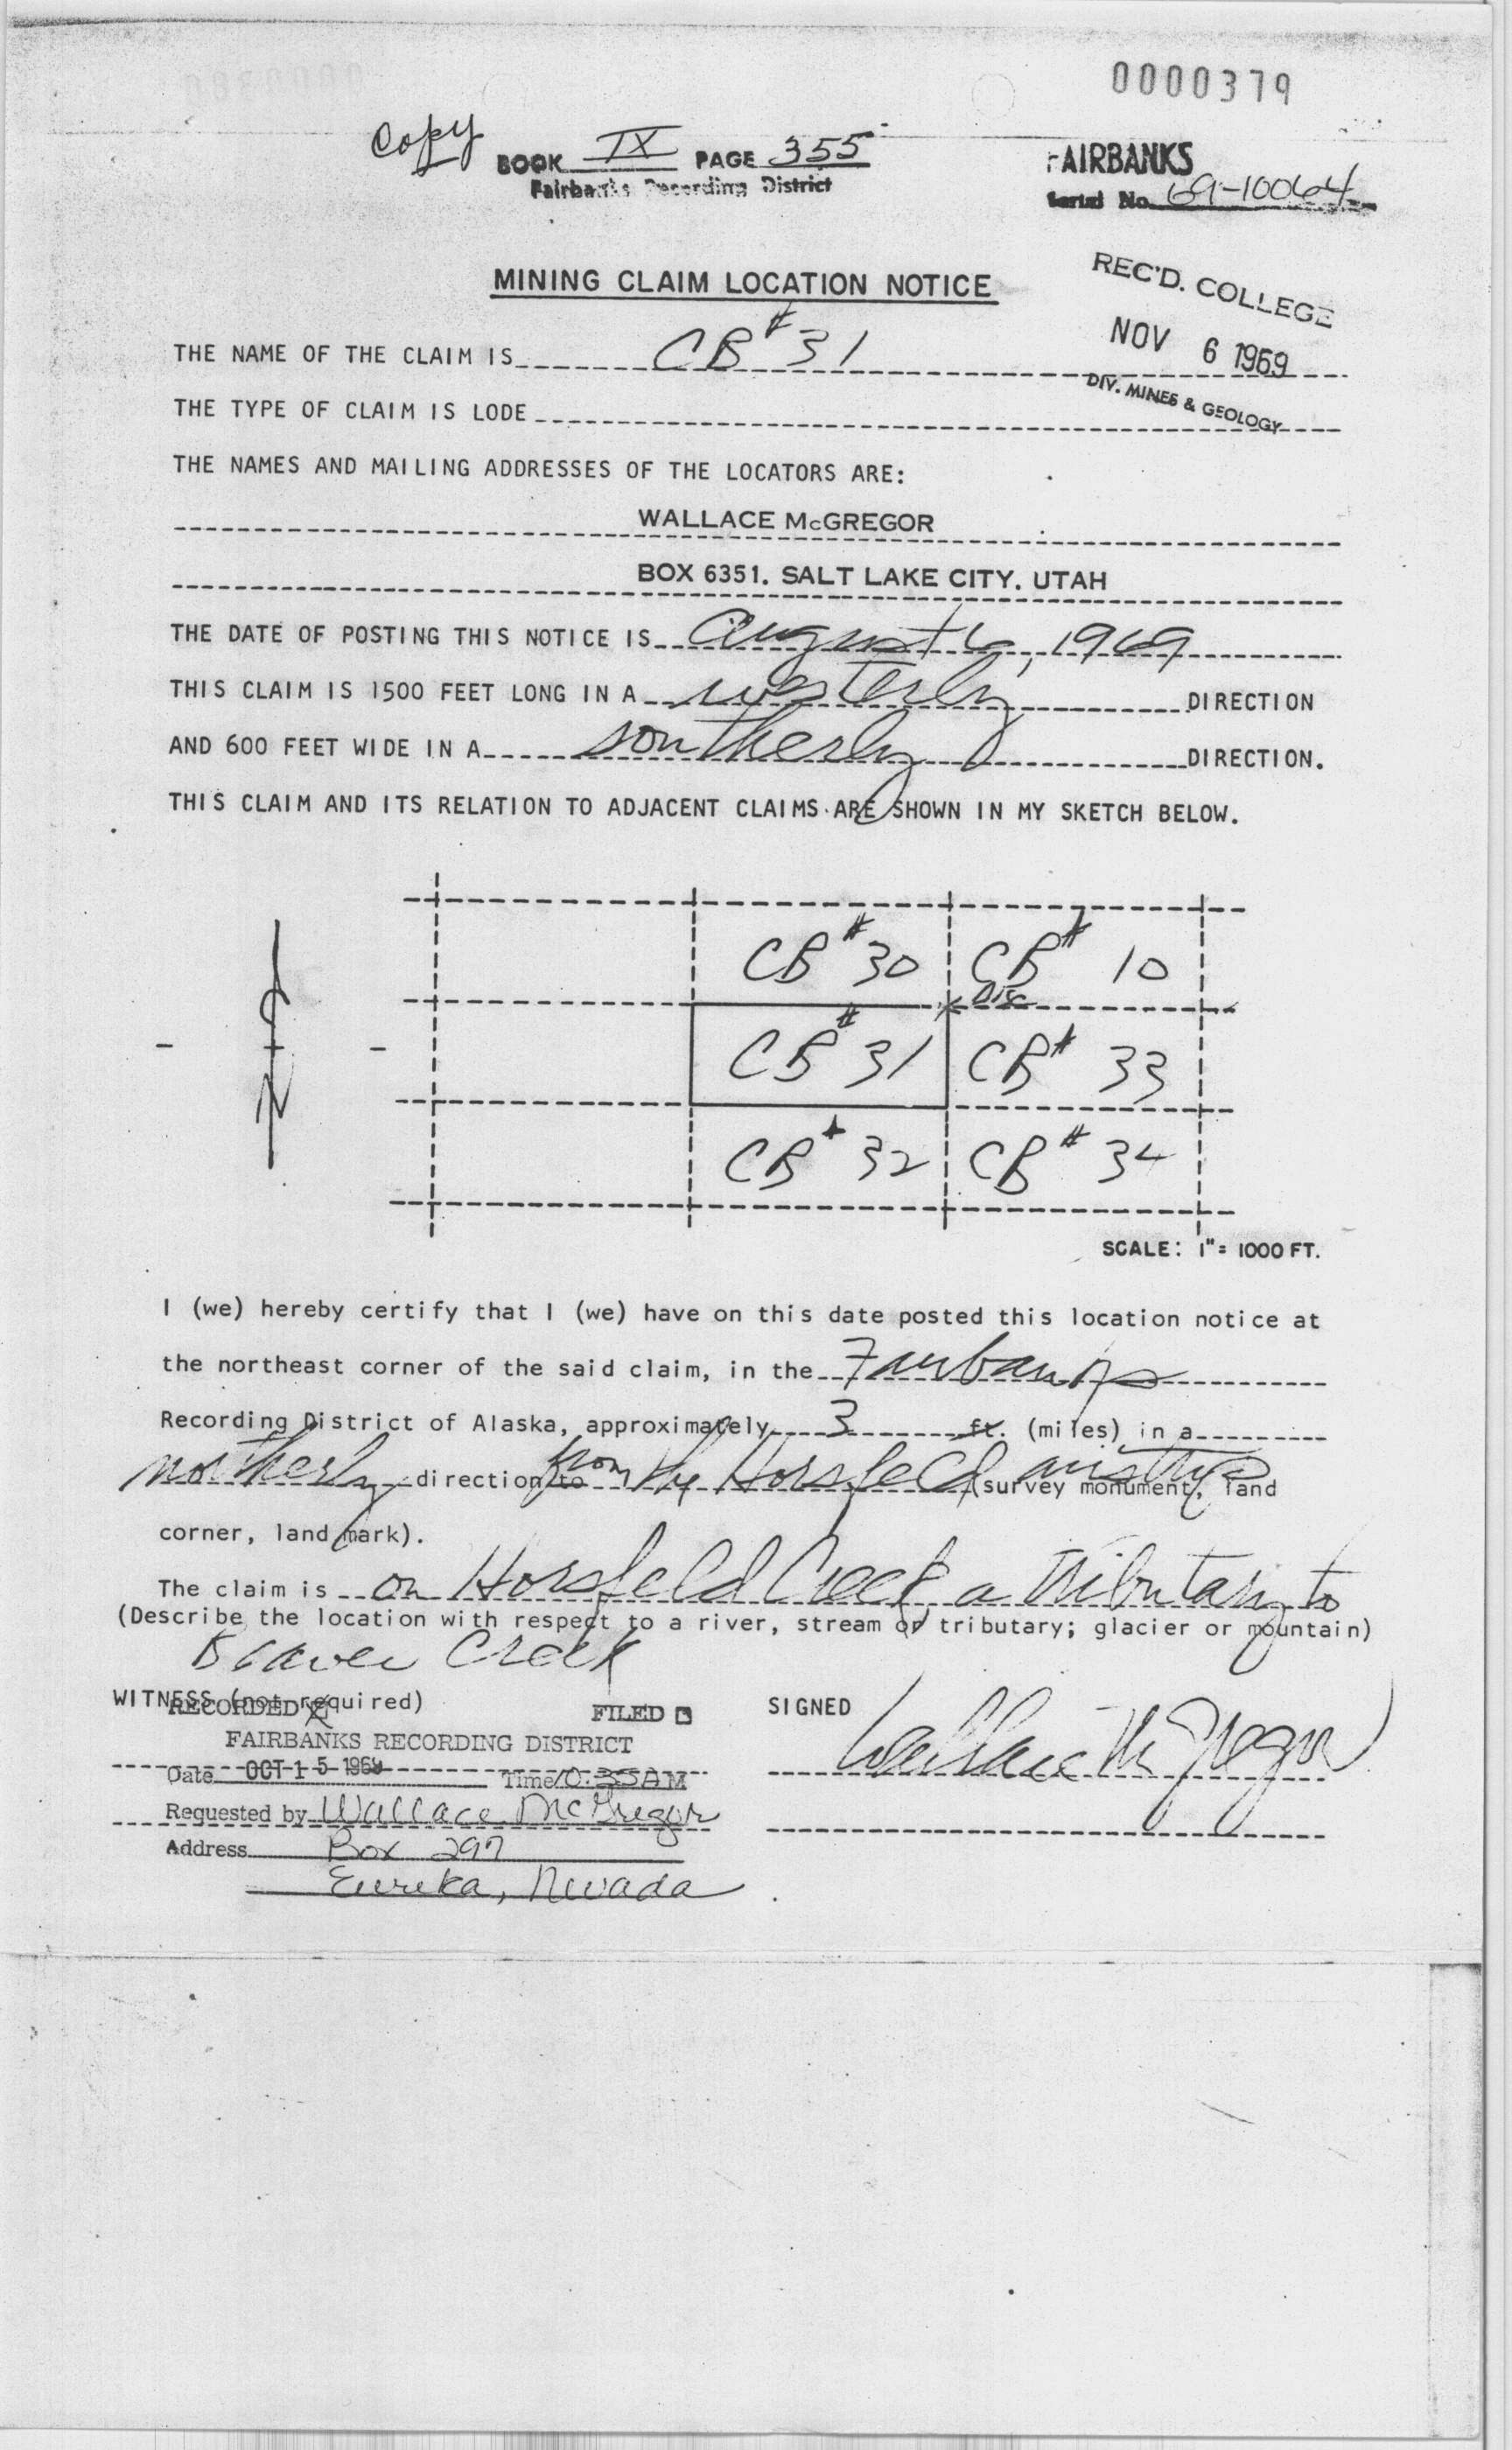 0000379
Copy
BOOK IX PAGE 355
Fairbanks Recording District
FAIRBANKS
Serial No. 69-10064
MINING CLAIM LOCATION NOTICE
REC'D. COLLEGE
NOV 6 1969
DIV. MINES & GEOLOGY
THE NAME OF THE CLAIM IS CB #31
THE TYPE OF CLAIM IS LODE
THE NAMES AND MAILING ADDRESSES OF THE LOCATORS ARE:
WALLACE McGREGOR
BOX 6351. SALT LAKE CITY. UTAH
THE DATE OF POSTING THIS NOTICE IS August 6, 1969
THIS CLAIM IS 1500 FEET LONG IN A westerly DIRECTION
AND 600 FEET WIDE IN A southerly DIRECTION.
THIS CLAIM AND ITS RELATION TO ADJACENT CLAIMS ARE SHOWN IN MY SKETCH BELOW.
CB #30 CB # 10
Disc
CB #31 CB # 33
N
CB # 32 CB # 34
SCALE: 1" = 1000 FT.
I (we) hereby certify that I (we) have on this date posted this location notice at
the northeast corner of the said claim, in the Fairbanks
Recording District of Alaska, approximately 3 ft. (miles) in a
northerly direction to from the Horsfeld airstrip (survey monument, land
corner, land mark).
The claim is on Horsfeld Creek a tributary to
(Describe the location with respect to a river, stream or tributary; glacier or mountain)
Beaver Creek
WITNESS (not required)
RECORDED FILED
SIGNED Wallace McGregor
FAIRBANKS RECORDING DISTRICT
Date OCT 15 1969 Time 10:35 AM
Requested by Wallace McGregor
Address Box 297
Eureka, Nevada